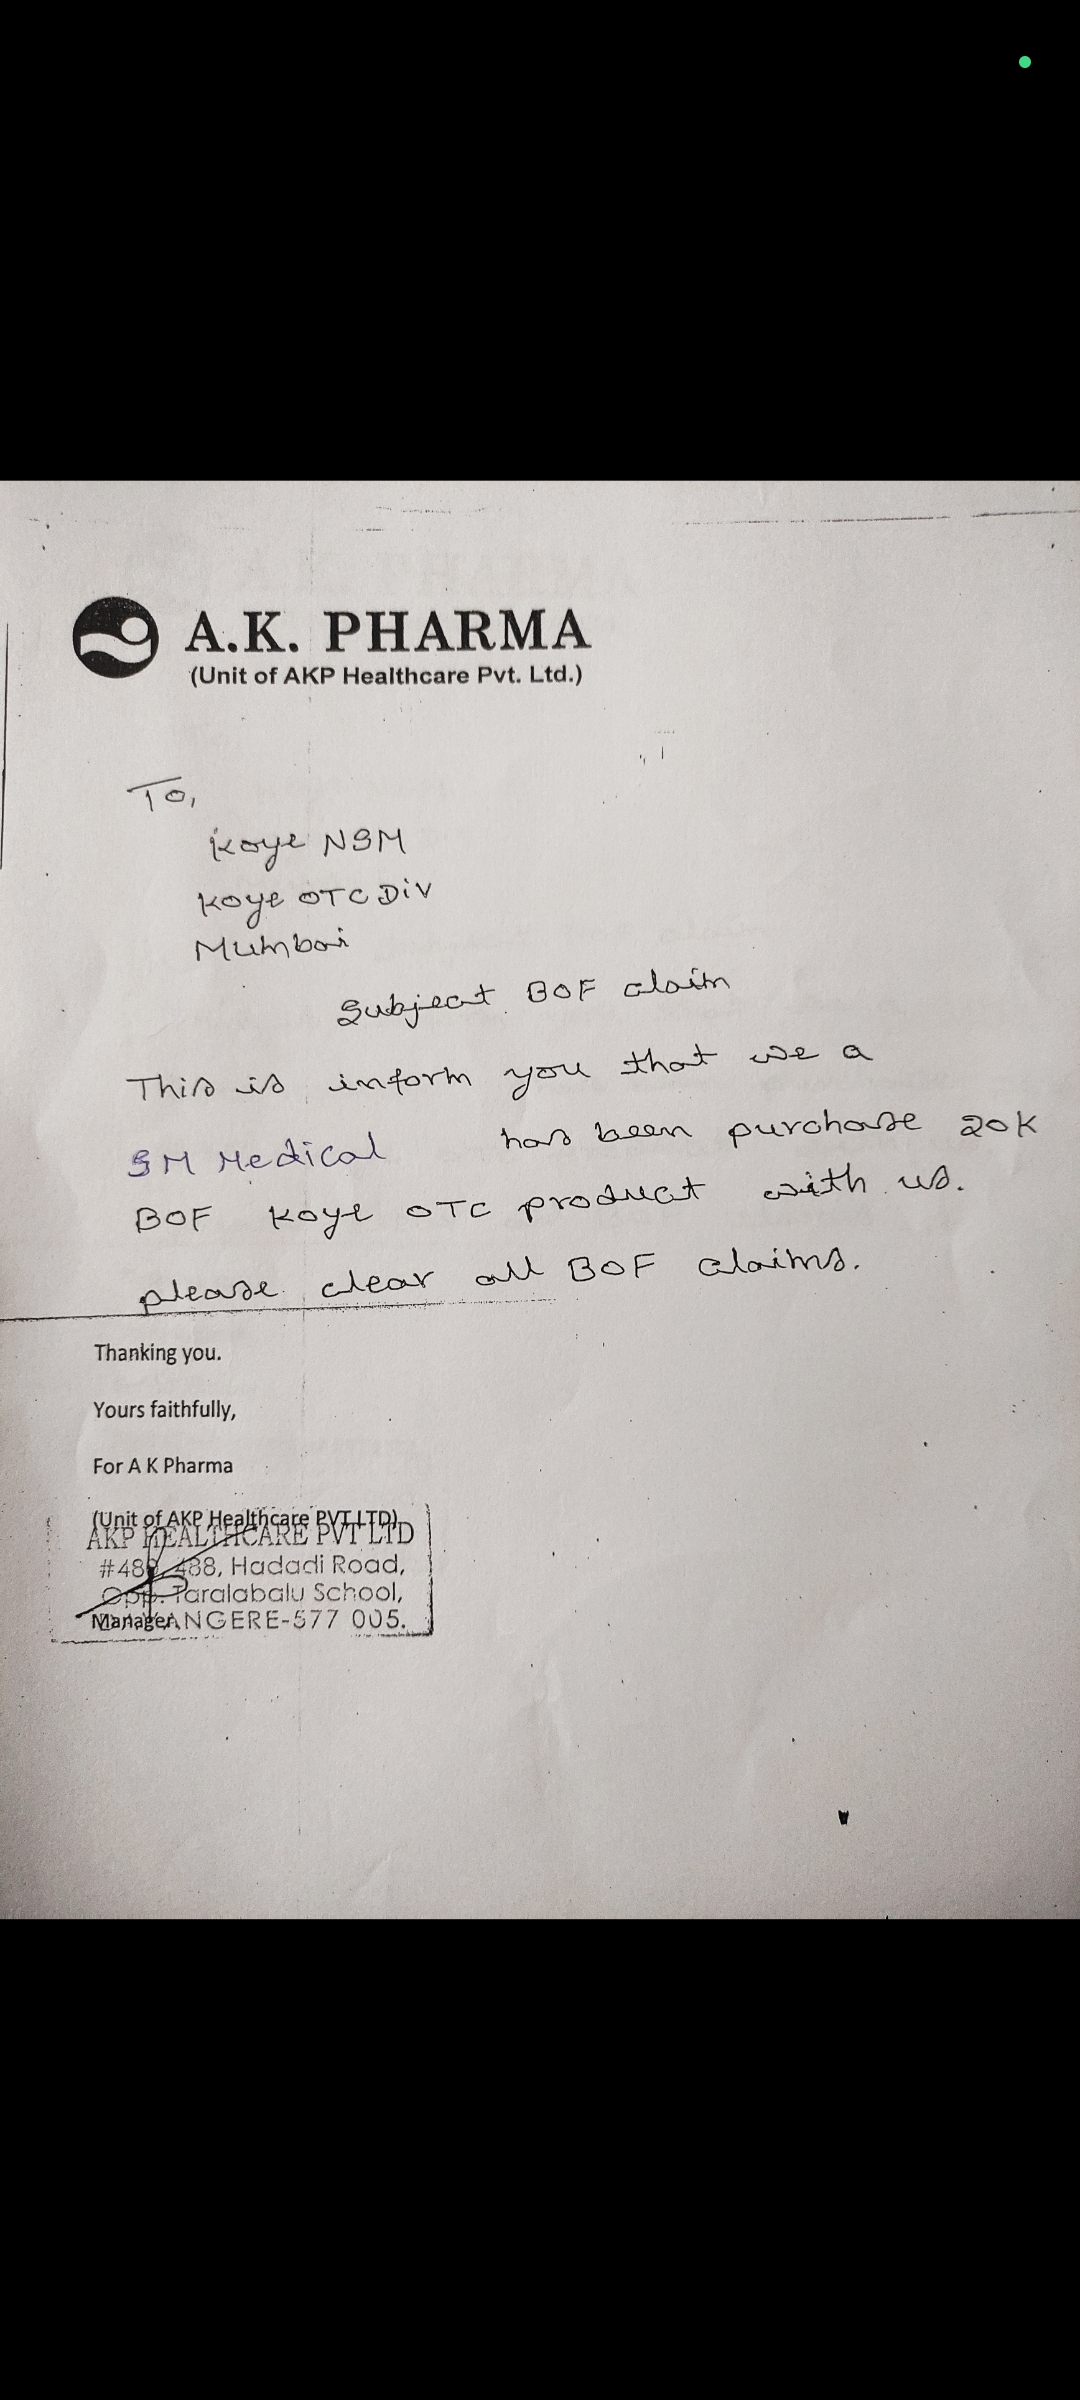 A.K. PHARMA
(Unit of AKP Healthcare Pvt. Ltd.)
To,
Koye NSM
Koye OTC Div
Mumbai
Subject BOF claim
This is inform you that we a
SM Medical has been purchase 20K
BOF Koye OTC product with us.
please clear all BOF claims.
Thanking you.
Yours faithfully,
For A K Pharma
(Unit of AKP Healthcare PVT LTD)
AKP HEALTHCARE PVT LTD
#489, 488, Hadadi Road,
Opp. Taralabalu School,
Manager
577 005.